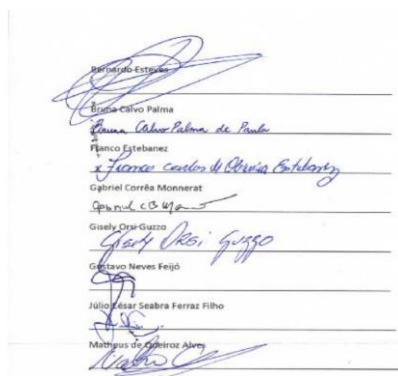 Bernardo Esteves
Bruna Calvo Palma
Bruna Calvo Palma de Paula
Franco Estebanez
x Franco Carlos de Oliveira Estebanez
Gabriel Corrêa Monnerat
Gabriel CB
Gisely Orsi Guzzo
Gisely Orsi Guzzo
Gustavo Neves Feijó
Júlio César Seabra Ferraz Filho
Matheus de Queiroz Alves